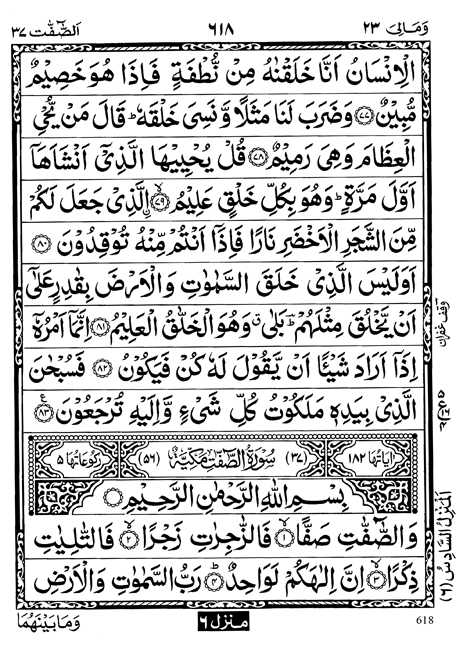 وَمَالِیَ ٢٣ ٦١٨ اَلصّٰٓفّٰت ٣٧
الْاِنْسَانُ اَنَّا خَلَقْنٰهُ مِنْ نُّطْفَةٍ فَاِذَا هُوَ خَصِيْمٌ
مُّبِيْنٌ ﴿٧٧﴾ وَضَرَبَ لَنَا مَثَلًا وَّنَسِیَ خَلْقَهٗ ؕ قَالَ مَنْ يُّحْیِ
الْعِظَامَ وَهِیَ رَمِيْمٌ ﴿٧٨﴾ قُلْ يُحْيِيْهَا الَّذِیْۤ اَنْشَاَهَاۤ
اَوَّلَ مَرَّةٍ ؕ وَهُوَ بِكُلِّ خَلْقٍ عَلِيْمُ ۙ﴿٧٩﴾ ۨالَّذِیْ جَعَلَ لَكُمْ
مِّنَ الشَّجَرِ الْاَخْضَرِ نَارًا فَاِذَاۤ اَنْتُمْ مِّنْهُ تُوْقِدُوْنَ ﴿٨٠﴾
اَوَلَيْسَ الَّذِیْ خَلَقَ السَّمٰوٰتِ وَالْاَرْضَ بِقٰدِرٍ عَلٰۤی
اَنْ يَّخْلُقَ مِثْلَهُمْ ؕ بَلٰی ۗ وَهُوَ الْخَلّٰقُ الْعَلِيْمُ ﴿٨١﴾ اِنَّمَاۤ اَمْرُهٗۤ
اِذَاۤ اَرَادَ شَيْـًٔا اَنْ يَّقُوْلَ لَهٗ كُنْ فَيَكُوْنُ ﴿٨٢﴾ فَسُبْحٰنَ
الَّذِیْ بِيَدِهٖ مَلَكُوْتُ كُلِّ شَیْءٍ وَّاِلَيْهِ تُرْجَعُوْنَ ﴿٨٣﴾ ع
اٰيَاتُهَا ١٨٢ (٣٧) سُوْرَةُ الصّٰٓفّٰتِ مَكِّيَّةٌ (٥٦) رُكُوْعَاتُهَا ٥
بِسْمِ اللّٰهِ الرَّحْمٰنِ الرَّحِيْمِ
وَالصّٰٓفّٰتِ صَفًّا ۙ﴿١﴾ فَالزّٰجِرٰتِ زَجْرًا ۙ﴿٢﴾ فَالتّٰلِيٰتِ
ذِكْرًا ۙ﴿٣﴾ اِنَّ اِلٰهَكُمْ لَوَاحِدٌ ؕ﴿٤﴾ رَبُّ السَّمٰوٰتِ وَالْاَرْضِ
وقف غفران
اَلْمَنْزِلُ السَّادِسُ (٦)
618 منزل ٦ وَمَا بَيْنَهُمَا